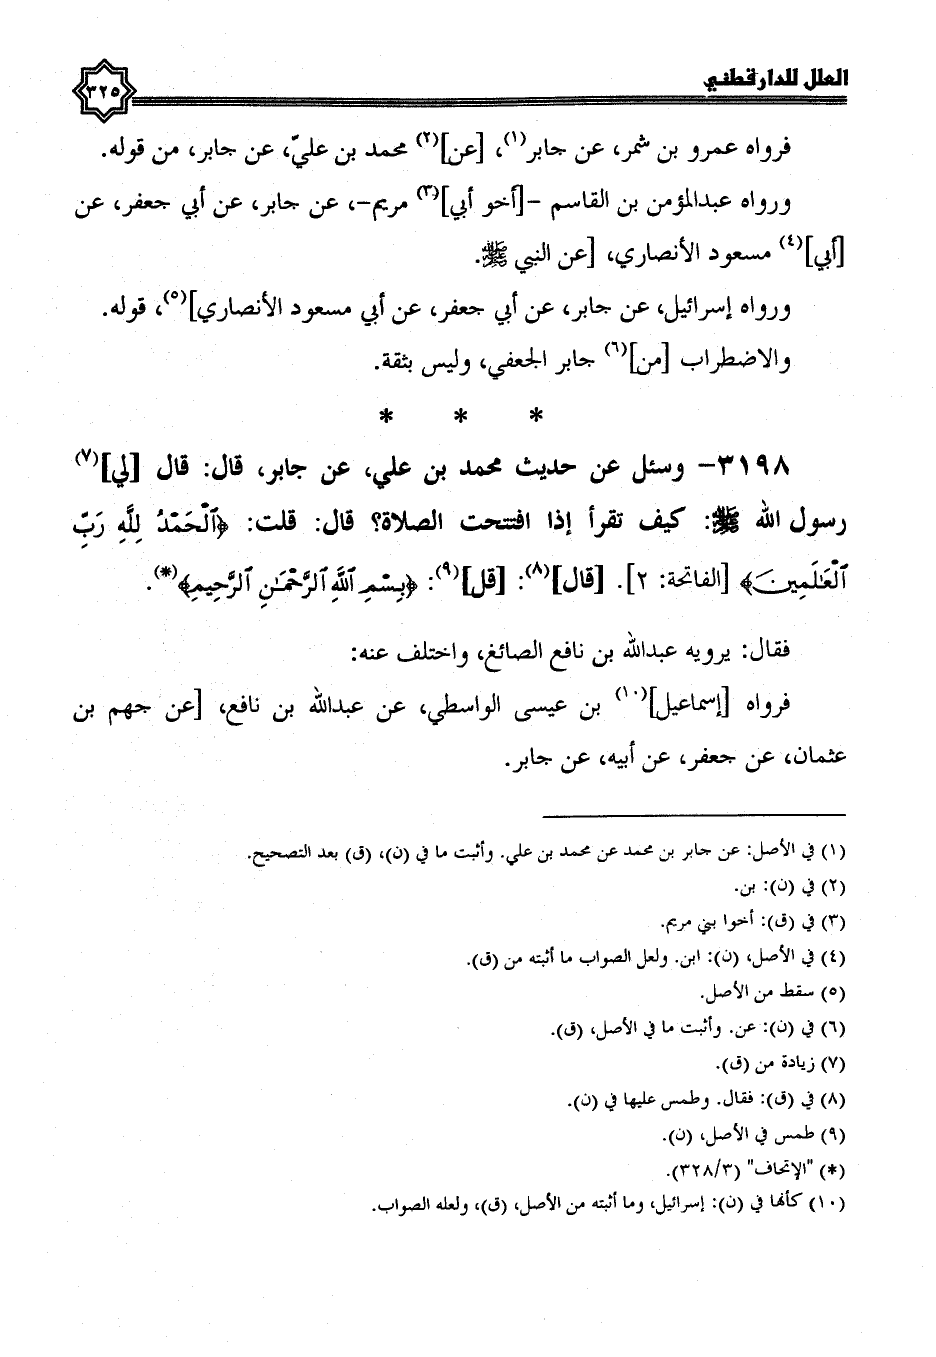 العلل للدارقطني
٣٢٥
فرواه عمرو بن شمر، عن جابر(١)، [عن](٢) محمد بن عليّ، عن جابر، من قوله.
ورواه عبدالمؤمن بن القاسم -[أخو أبي](٣) مريم-، عن جابر، عن أبي جعفر، عن
[أبي](٤) مسعود الأنصاري، [عن النبي ﷺ.
ورواه إسرائيل، عن جابر، عن أبي جعفر، عن أبي مسعود الأنصاري](٥)، قوله.
والاضطراب [من](٦) جابر الجعفي، وليس بثقة.
* * *
٣١٩٨- وسئل عن حديث محمد بن علي، عن جابر، قال: قال [لي](٧)
رسول الله ﷺ: كيف تقرأ إذا افتتحت الصلاة؟ قال: قلت: ﴿ٱلْحَمْدُ لِلَّهِ رَبِّ
ٱلْعَٰلَمِينَ﴾ [الفاتحة: ٢]. [قال](٨): [قل](٩): ﴿بِسْمِ ٱللَّهِ ٱلرَّحْمَٰنِ ٱلرَّحِيمِ﴾(*).
فقال: يرويه عبدالله بن نافع الصائغ، واختلف عنه:
فرواه [إسماعيل](١٠) بن عيسى الواسطي، عن عبدالله بن نافع، [عن جهم بن
عثمان، عن جعفر، عن أبيه، عن جابر.
(١) في الأصل: عن جابر بن محمد عن محمد بن علي. وأثبت ما في (ن)، (ق) بعد التصحيح.
(٢) في (ن): بن.
(٣) في (ق): أخوا بني مريم.
(٤) في الأصل، (ن): ابن. ولعل الصواب ما أثبته من (ق).
(٥) سقط من الأصل.
(٦) في (ن): عن. وأثبت ما في الأصل، (ق).
(٧) زيادة من (ق).
(٨) في (ق): فقال. وطمس عليها في (ن).
(٩) طمس في الأصل، (ن).
(*) "الإتحاف" (٣٢٨/٣).
(١٠) كأنها في (ن): إسرائيل، وما أثبته من الأصل، (ق)، ولعله الصواب.